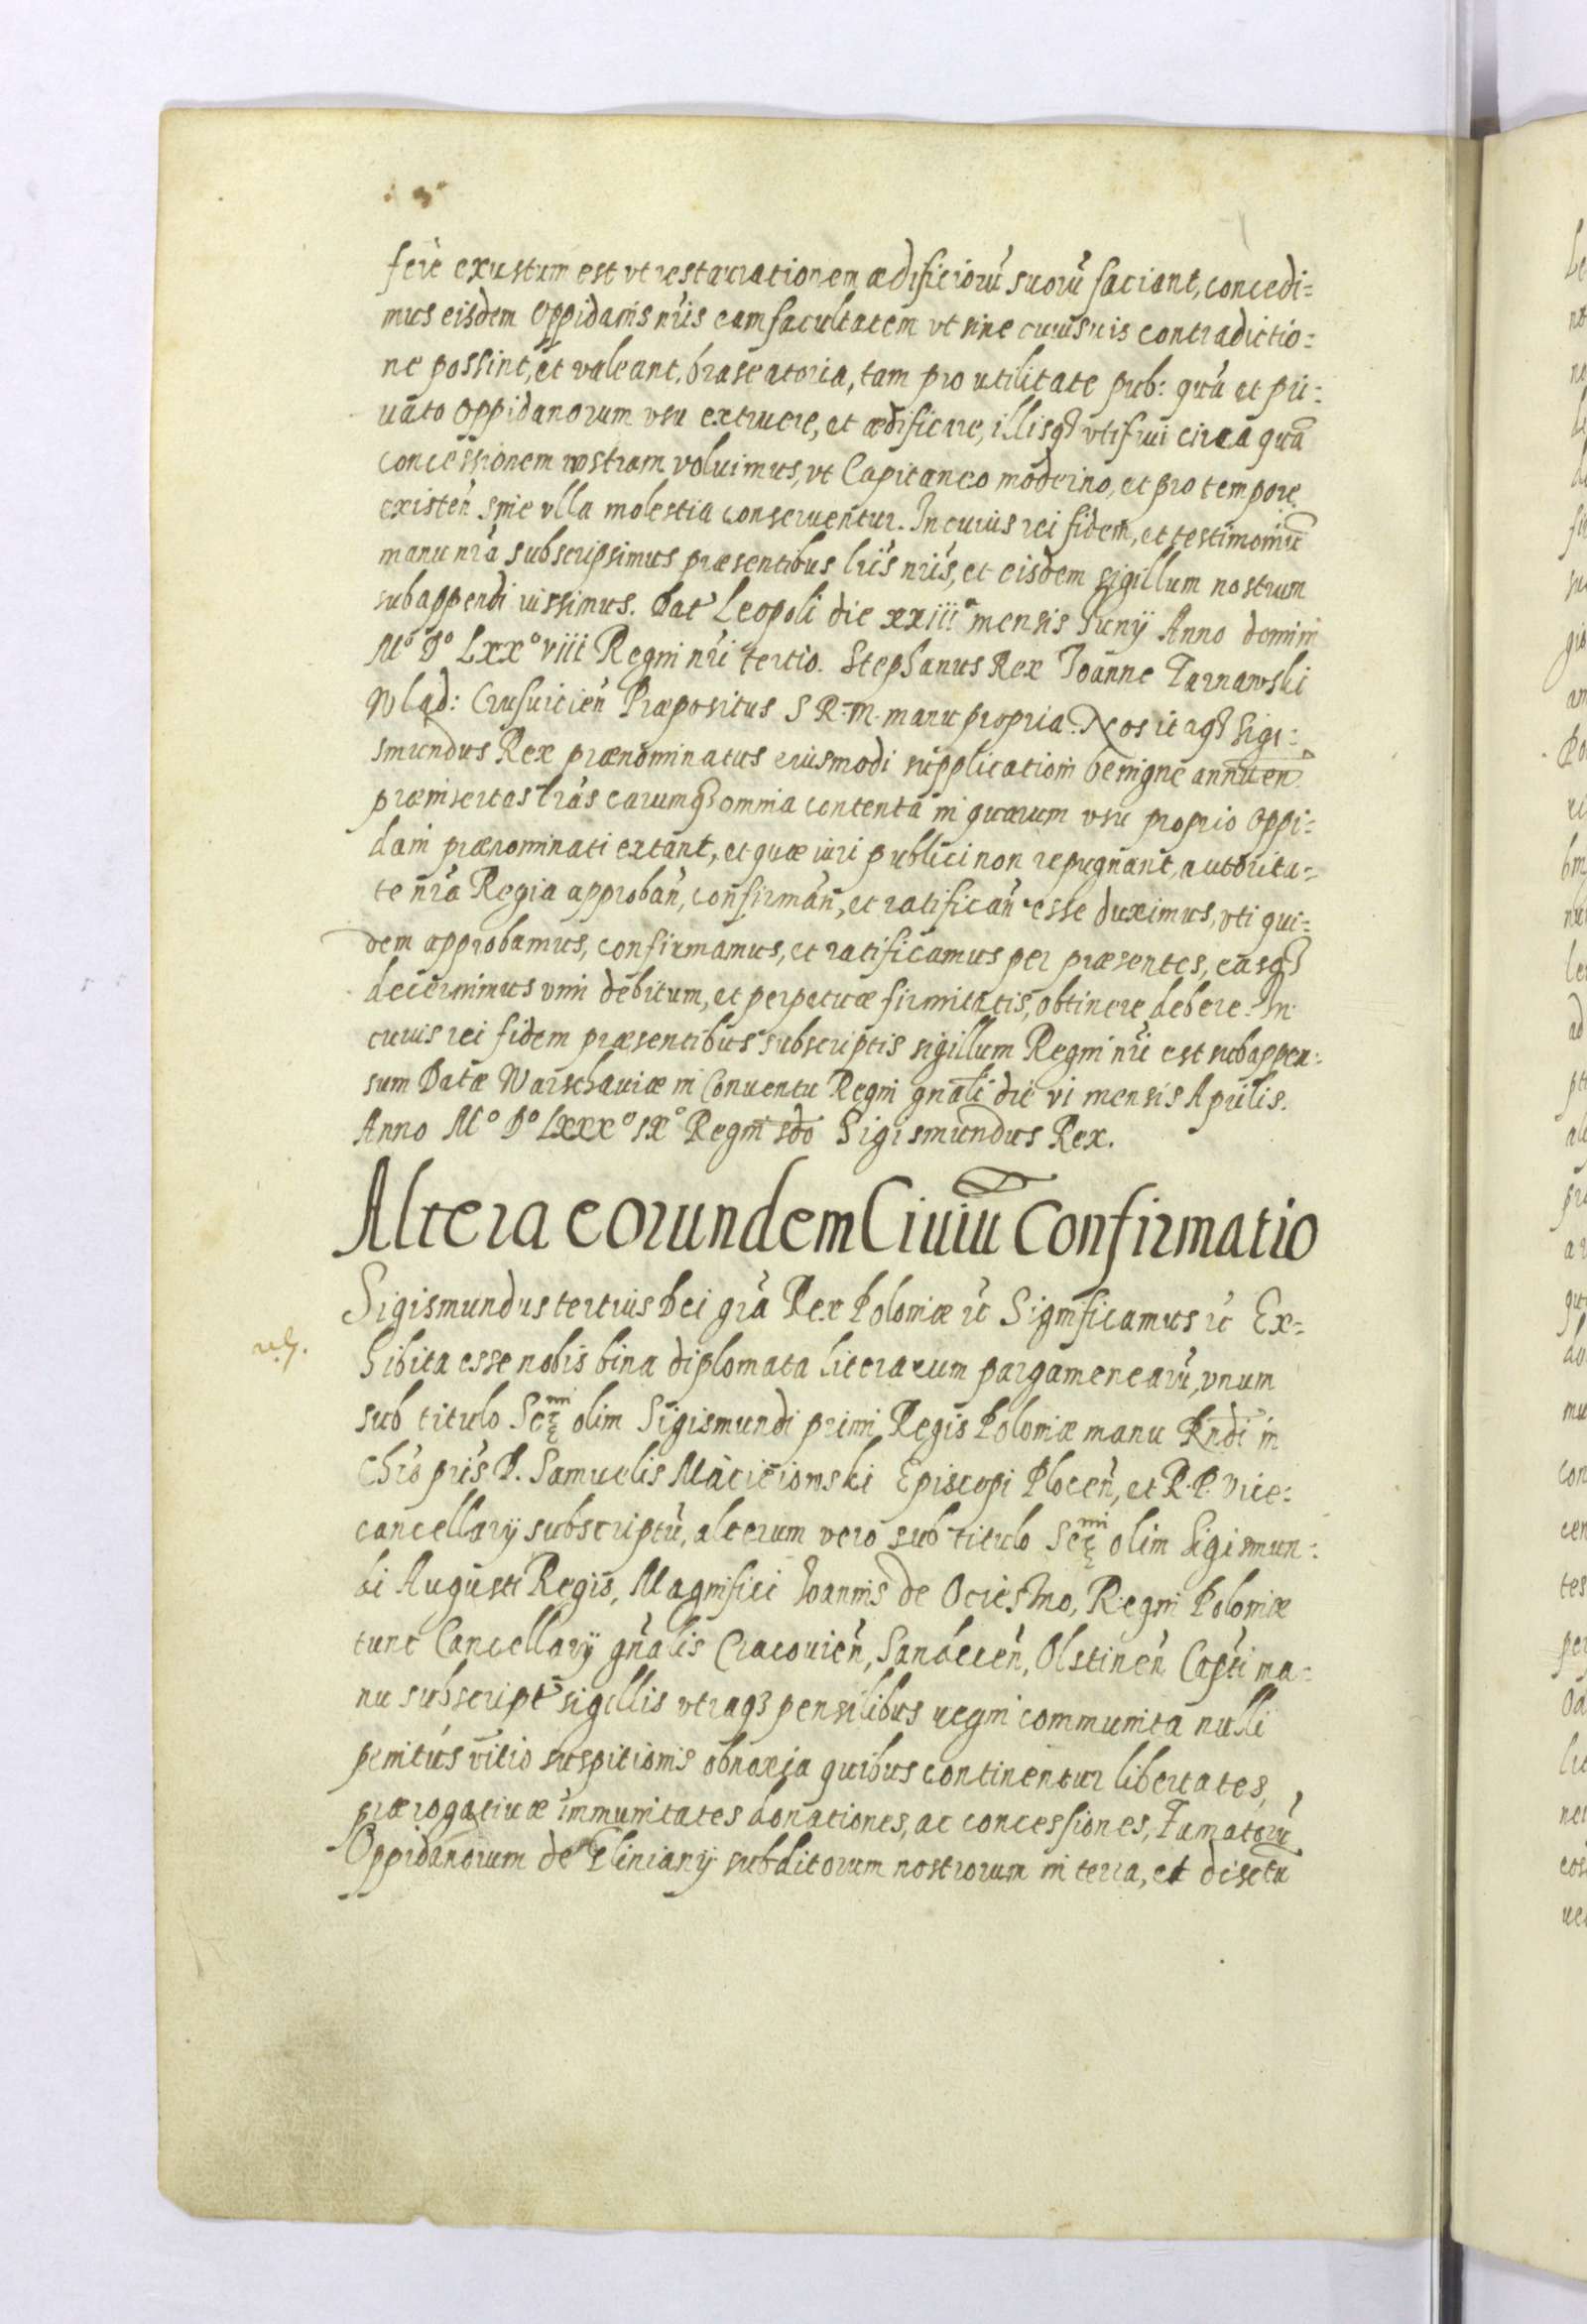 fere exustum est vt restaurationem ædificiorū suorū faciant, concedi=
mus eisdem Oppidanis nr̄is eam facultatem vt sine cuiusuis contradictio=
ne possint, et valeant, braseatoria, tam pro utilitate pub: quā et pri=
uato Oppidanorum vsu extruere, et ædificare, illisq3 vti frui circa quā
concessionem nostram voluimus, vt Capitaneo moderno, et pro tempore
existeñ sine vlla molestia conseruentur. In cuius rei fidem, et testimoniū
manu nr̄a subscripsimus præsentibus lr̄is nr̄is, et eisdem sigillum nostrum
subappendi iussimus. Dat̄ Leopoli die xxiiiᵃ mensis Iunij Anno domini
Mº Dº Lxxº viii Regni nr̄i tertio. Stephanus Rex Joanne Tarnawski
Wlad: Crusuicieñ Præpositus S R. M. manu propria. Nos itaq3 Sigi=
smundus Rex prænominatus eiusmodi supplicationi benigne annueñ
præinsertas lr̄as earumq3 omnia contenta in quarum vsu proprio Oppi=
dani prænominati extant, et quæ iuri publici non repugnant, autorita=
te nr̄a Regia approbañ, confirmañ, et ratificañ esse duximus, vti qui=
dem approbamus, confirmamus, et ratificamus per præsentes, easq3
decernimus vim debitum, et perpetuæ firmitatis, obtinere debere. In
cuius rei fidem præsentibus subscriptis sigillum Regni nr̄i est subappen=
sum Datæ Warschauiæ in Conuentu Regni gnāli die vi mensis Aprilis.
Anno Mº Dº Lxxxº ixº Regni sdo Sigismundus Rex.
Altera eorundem Ciuiū Confirmatio
Sigismundus tertius Dei gr̄a Rex Poloniæ ic̄ Significamus ic̄ Ex=
hibita esse nobis bina diplomata literarum pargamenearū, vnum
sub titulo Ser̄ᵐⁱ olim Sigismundi primi Regis Poloniæ manu Rn̄di in
Chr̄o pr̄is D. Samuelis Macieiowski Episcopi Ploceñ, et R. P. Vice=
cancellarij subscriptū, alterum vero sub titulo Ser̄ᵐⁱ olim Sigismun=
di Augusti Regis, Magnifici Joannis de Ocieshno, Regni Poloniæ
tunc Cancellarij gn̄alis Cracouieñ, Sandeceñ, Olstineñ Capt̄i ma=
nu subscript̄ sigillis vtraq3 pensilibus regni communita nulli
penitus vitio suspitionis obnoxia quibus continentur libertates,
prærogatiuæ immunitates donationes, ac concessiones, Famatorū
Oppidanorum de Gliniany subditorum nostrorum in terra, et distctu